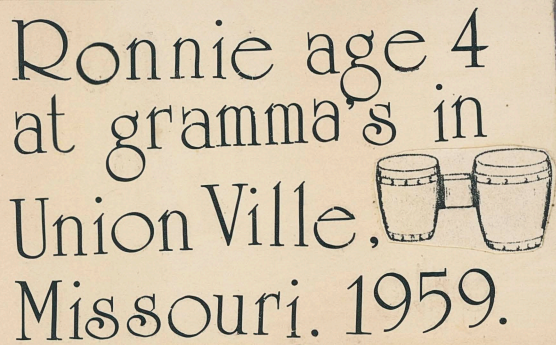 Ronnie age 4
at gramma's in
Union Ville,
Missouri. 1959.